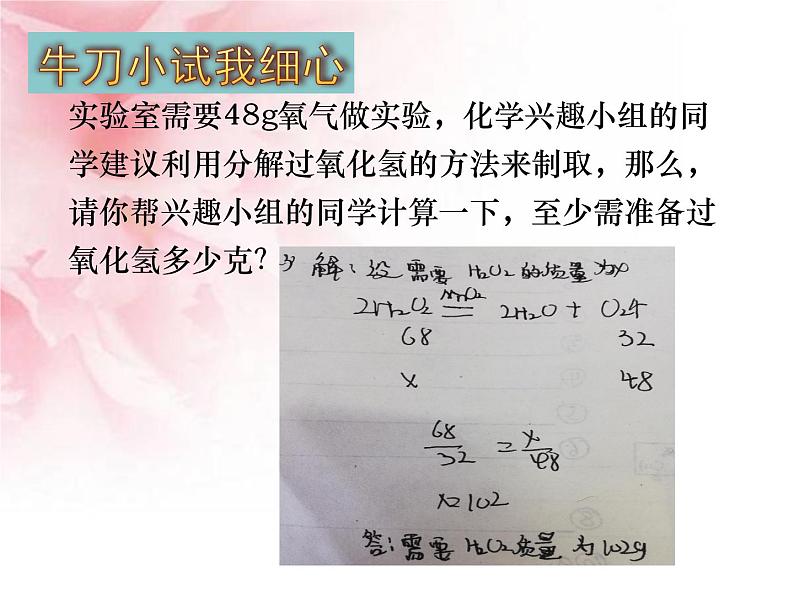 牛刀小试我细心
实验室需要48g氧气做实验，化学兴趣小组的同
学建议利用分解过氧化氢的方法来制取，那么，
请你帮兴趣小组的同学计算一下，至少需准备过
氧化氢多少克？
解：设需要H₂O₂的质量为x
MnO₂
2H₂O₂ = 2H₂O + O₂↑
68 32
x 48
68/32 = x/48
x=102
答：需要H₂O₂质量为102g